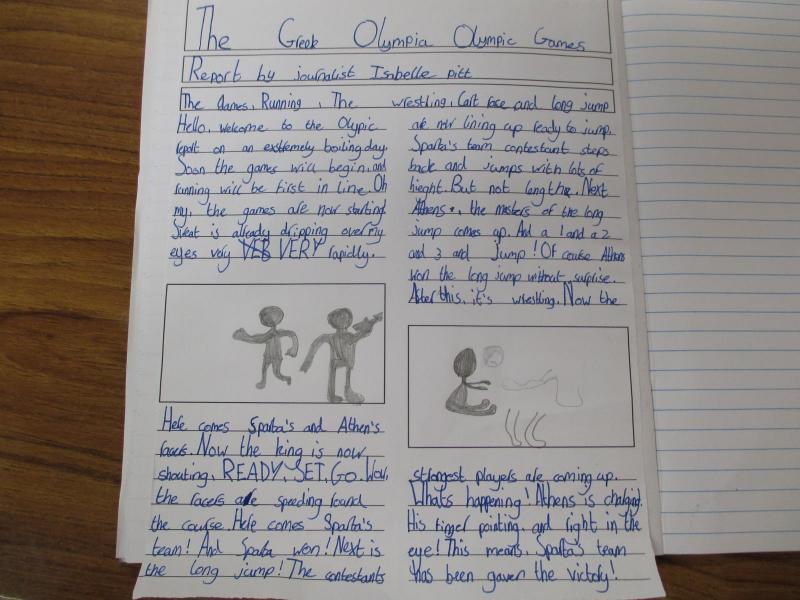 The Greek Olympia Olympic Games
Report by journalist Isabelle pitt
The Games, Running, The wrestling, Cart race and long jump
Hello, welcome to the Olypic
report on an exstremely boiling day.
Soon the games will begin, and
running will be first in line. Oh
my, the games are now starting.
Sweat is already dripping over my
eyes very VERY rapidly.
Here comes Sparta's and Athen's
racers. Now the king is now
shouting, READY, SET, GO. Wow,
the racers are speeding round
the course. Here comes Sparta's
team! And Sparta won! Next is
the long jump! The contestants
are now lining up ready to jump.
Sparta's team contestant steps
back and jumps with lots of
hieght. But not length. Next
Athens, the masters of the long
jump comes up. And a 1 and a 2
and 3 and Jump! Of course Athens
won the long jump without surprise.
After this, it's wrestling. Now the
strongest players are coming up.
Whats happening! Athens is charging.
His finger pointing, and right in the
eye! This means, Sparta's team
has been gaven the victory!